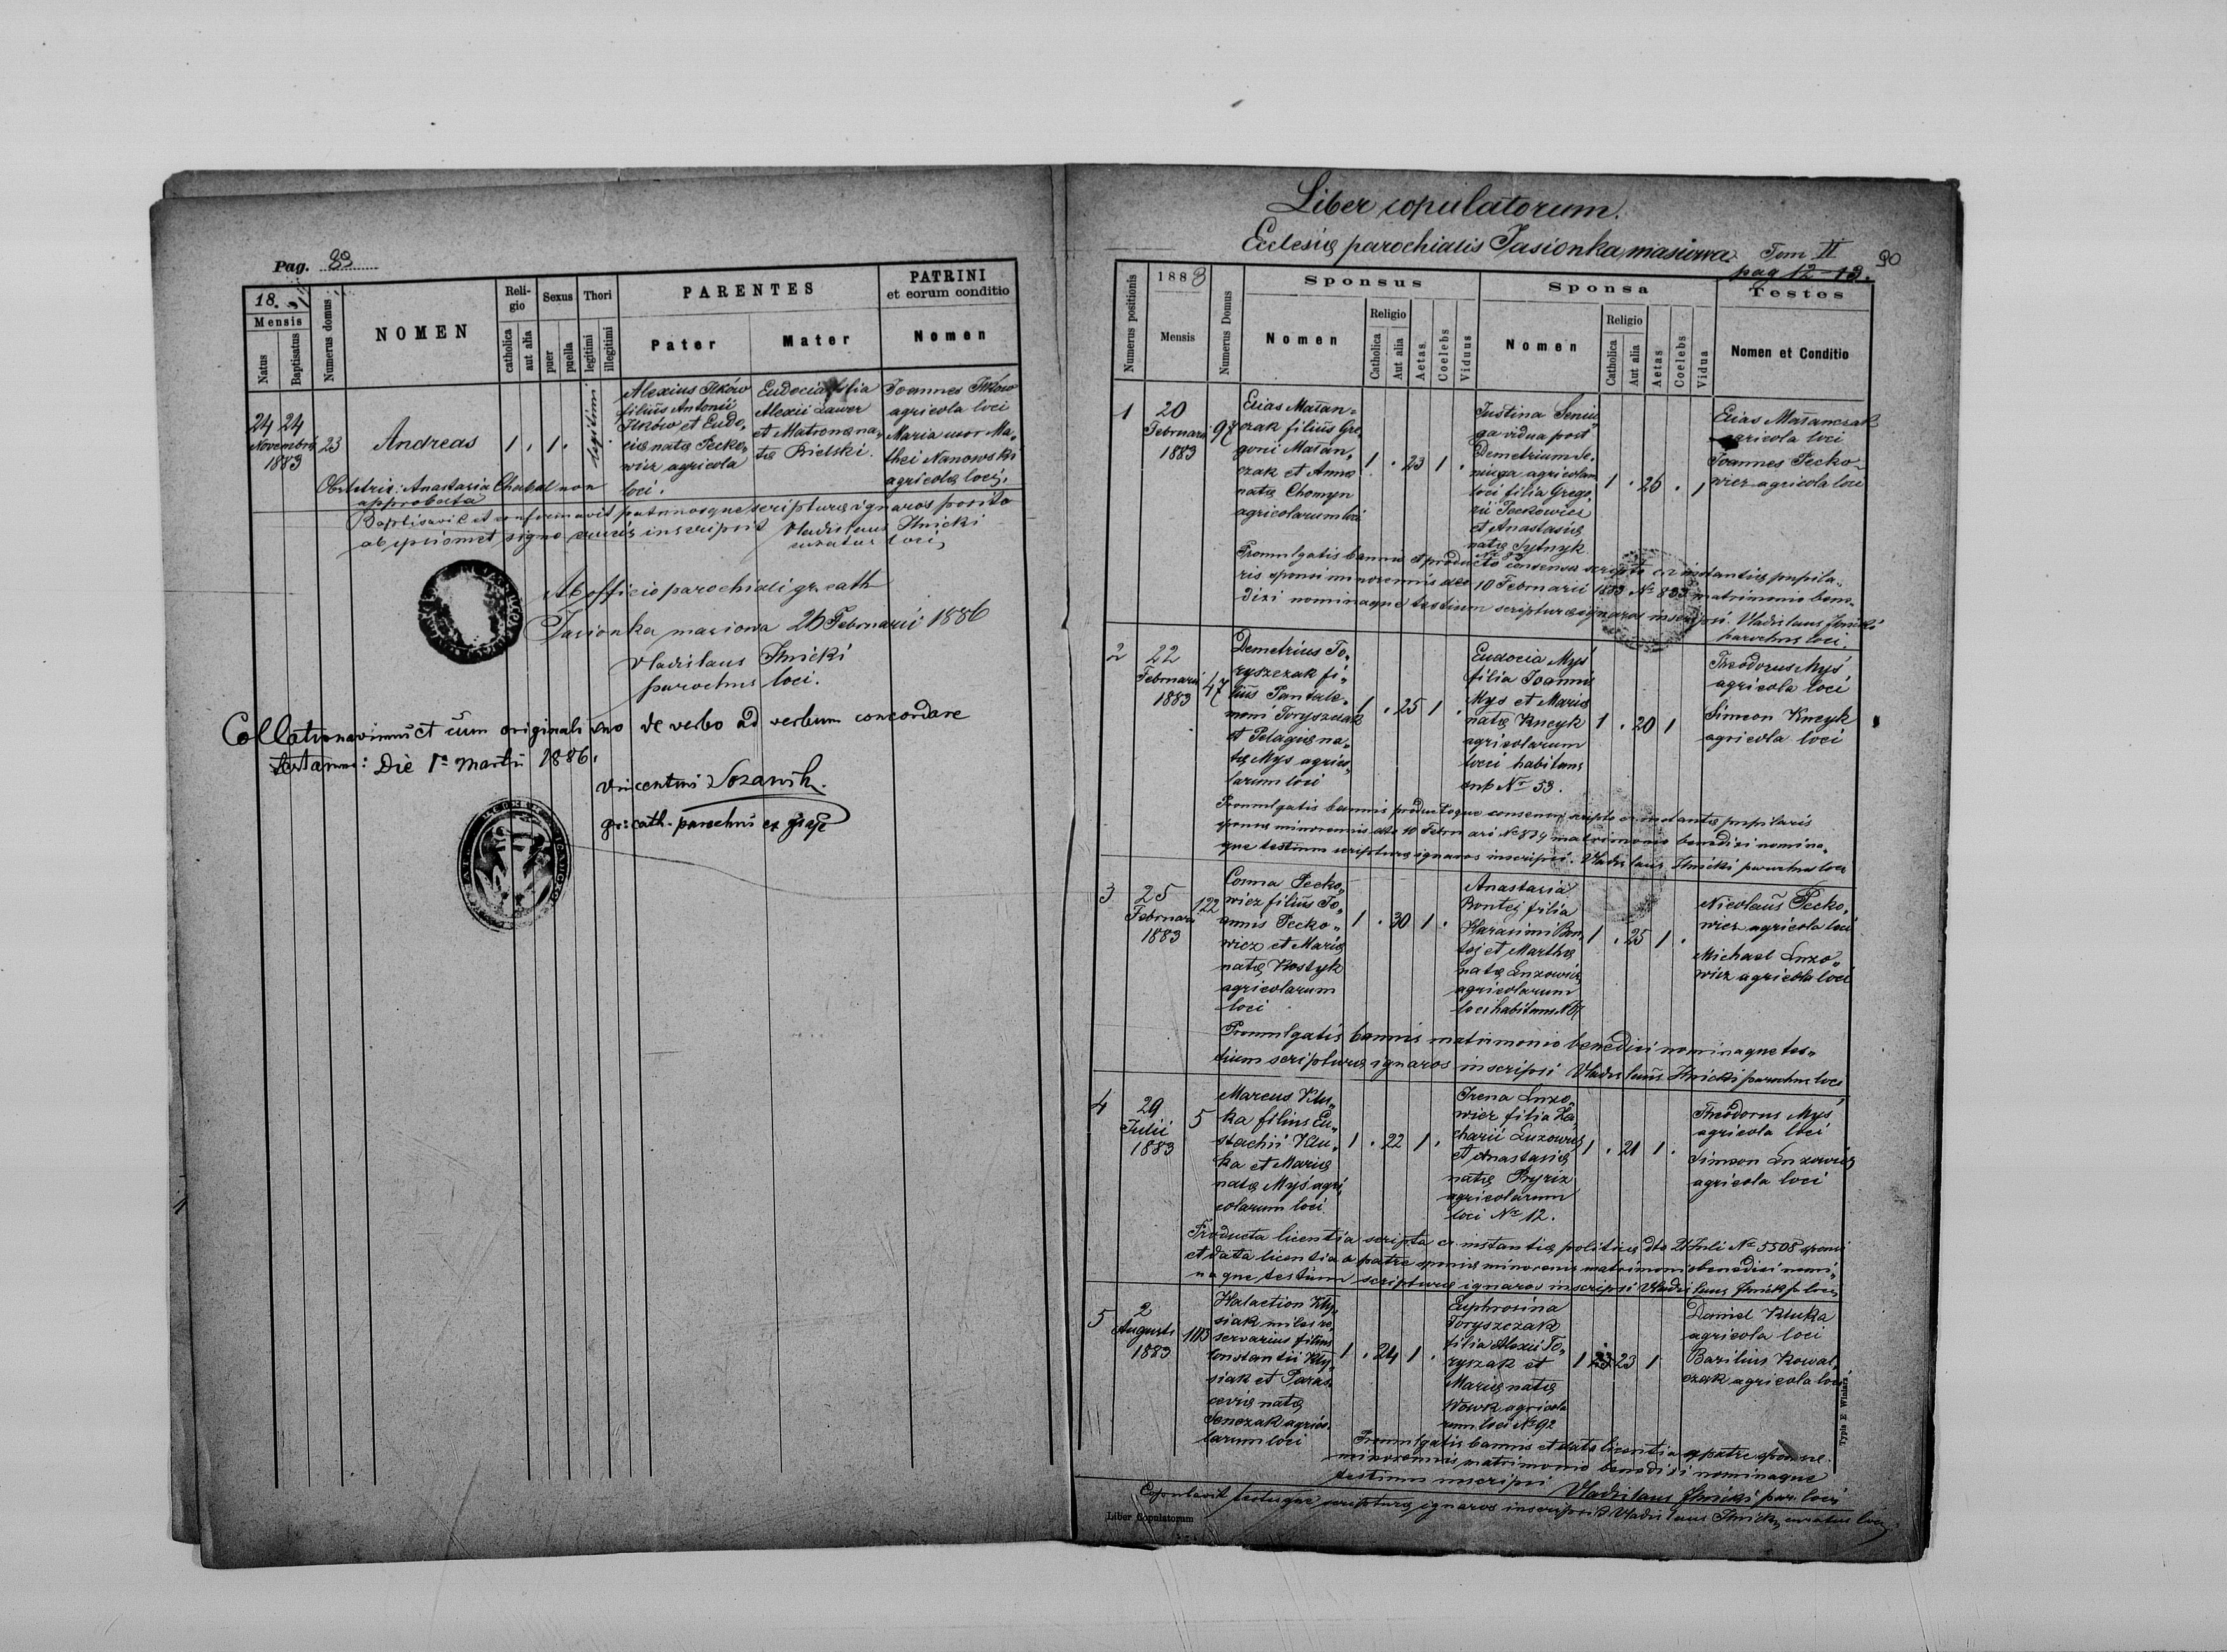 Pag. 89
18.
Mensis
Natus
Baptisatus
Numerus domus
NOMEN
Reli-
gio
catholica
aut alia
Sexus
puer
puella
Thori
legitimi
illegitimi
PARENTES
Pater
Mater
PATRINI
et eorum conditio
Nomen
24 24
Novembris
1883
23
Andreas
1 . 1 .
legitimi
Alexius Ilków
filius Antonii
Ilków et Eudo-
ciæ natæ Pecko-
wicz agricola
loci.
Eudocia filia
Alexii Lawer
et Matronæ na-
tæ Bielski.
Joannes Ilków
agricola loci
Maria uxor Ma-
thei Nanowski
agricolæ loci.
Obstetrix: Anastasia Chabal non
approbata
Baptisavit et confirmavit patrinosque scripturæ ignaros posito
ab ipsismet signo crucis inscripsit Vladislaus Ilnicki
curatus loci
Ab officio parochiali gr. cath
Jasionka masiowa 26 Februarii 1886
Vladislaus Ilnicki
parochus loci.
Collationavimus et cum originali suo de verbo ad verbum concordare
testamur: Die 1a Martii 1886.
Vincentius
gr: cath. parochus
Liber copulatorum.
Ecclesiæ parochialis Jasionka masiowa. Tom II
pag 12-13.
90
Numerus positionis
1883
Mensis
Numerus Domus
Sponsus
Nomen
Religio
Catholica
Aut alia
Aetas
Coelebs
Viduus
Sponsa
Nomen
Religio
Catholica
Aut alia
Aetas
Coelebs
Vidua
Testes
Nomen et Conditio
1
20
Februarii
1883
97
Elias Matan-
czak filius Gre-
gorii Matan-
czak et Annæ
natæ Chomyn
agricolarum loci
1 . 23 1 .
Justina Seniu-
ga vidua post
Demetrium Se-
niuga agricolam
loci filia Grego-
rii Peckowicz
et Anastasiæ
natæ Sytnyk
1 . 26 . 1
Elias Matanczak
agricola loci
Joannes Pecko-
wicz agricola loci
Promulgatis bannis et producto consensu scripto ex instantiæ pupila-
ris sponsi minorennis dto 10 Februarii 1883 No 833 matrimonio bene-
dixi nominaque testium scripturæ ignaros inscripsi. Vladislaus Ilnicki
parochus loci.
2
22
Februarii
1883
47
Demetrius To-
ryszczak fi-
lius Pantale-
moni Toryszczak
et Pelagiæ na-
tæ Mys agrico-
larum loci
1 . 25 1 .
Eudocia Myś
filia Joannis
Mys et Mariæ
natæ Kneyk
agricolarum
loci habitans
sub No 53.
1 . 20 1
Theodorus Myś
agricola loci
Simeon Kneyk
agricola loci
Promulgatis bannis productoque consensu scripto ex instantiæ pupilaris
sponsæ minorennis dto 10 Februarii No 834 matrimonio benedixi nomina-
que testium scripturæ ignaros inscripsi. Vladislaus Ilnicki parochus loci
3
25
Februarii
1883
122
Cosma Pecko-
wicz filius Jo-
annis Pecko-
wicz et Mariæ
natæ Kostyk
agricolarum
loci
1 . 30 1 .
Anastasia
Bontej filia
Harasimi Bon-
tej et Marthæ
natæ Luzowicz
agricolarum
loci habitans
1 . 25 1 .
Nicolaus Pecko-
wicz agricola loci
Michael Luzo-
wicz agricola loci
Promulgatis bannis matrimonio benedixi nominaque tes-
tium scripturæ ignaros inscripsi Vladislaus Ilnicki parochus loci
4
29
Julii
1883
5
Marcus Klu-
ka filius Eu-
stachii Klu-
ka et Mariæ
natæ Myś agri-
colarum loci
1 . 22 1 .
Irena Luzo-
wicz filia Za-
charii Luzowicz
et Anastasiæ
natæ Pryriz
agricolarum
loci No 12.
1 . 21 1 .
Theodorus Myś
agricola loci
Simeon Luzowicz
agricola loci
Producta licentia scripta ex instantiæ politicæ dto 21 Juli No 5508 sponsi
et data licentia a patre sponsæ minorennis matrimonio benedixi nomi-
naque testium scripturæ ignaros inscripsi Vladislaus Ilnicki p. loci
5
2
Augusti
1883
113
Halaction Kly-
siak miles re-
servarius filius
Constantii Kly-
siak et Paras-
ceviæ natæ
Senczak agrico-
larum loci
1 . 24 1 .
Euphrosina
Toryszczak
filia Alexii To-
ryszak et
Mariæ natæ
Wowk agricola-
rum loci No 92
1 23 1
Daniel Kluka
agricola loci
Basilius Kowal-
czak agricola loci
Promulgatis bannis et data licentia a patre sponsæ
minorennis matrimonio benedixi nominaque
testium inscripsi Vladislaus Ilnicki par. loci
Copulavit testesque scripturæ ignaros inscripsit Vladislaus Ilnicki curatus loci
Liber Copulatorum
Typis E Winiarz